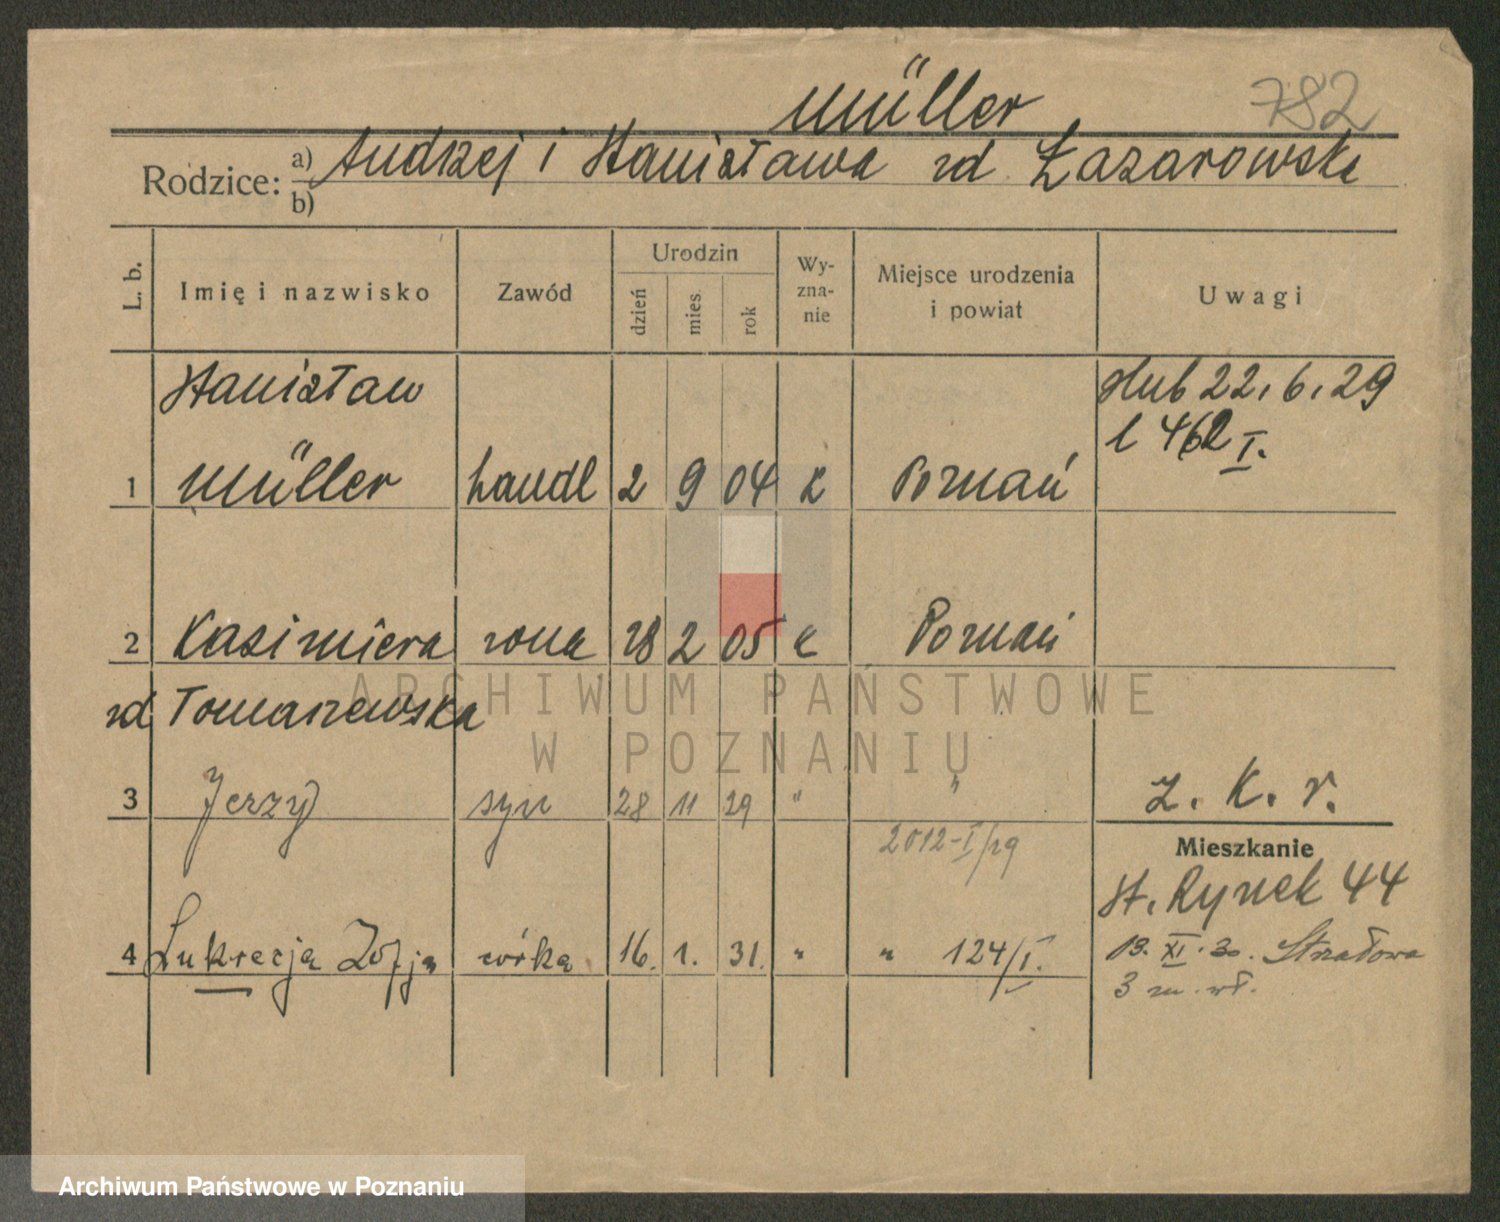 Müller 782
Rodzice: a) Andrzej i Stanisława zd Łazarowska
b)
L. b. Imię i nazwisko Zawód Urodzin dzień mies. rok Wy-zna-nie Miejsce urodzenia i powiat Uwagi
Stanisław ślub 22.6.29
l 462 I.
1 Müller handl 2 9 04 k Poznań
2 Kazimiera żona 28 2 05 k Poznań
zd Tomaszewska
3 Jerzy syn 28 11 29 " " z. k. r.
2012-I/29 Mieszkanie
St. Rynek 44
4 Lukrecja Zofja córka 16. 1. 31. " " 124/I. 19. XI. 30. Strzałowa
3 m. wł.
ARCHIWUM PAŃSTWOWE
W POZNANIU
Archiwum Państwowe w Poznaniu